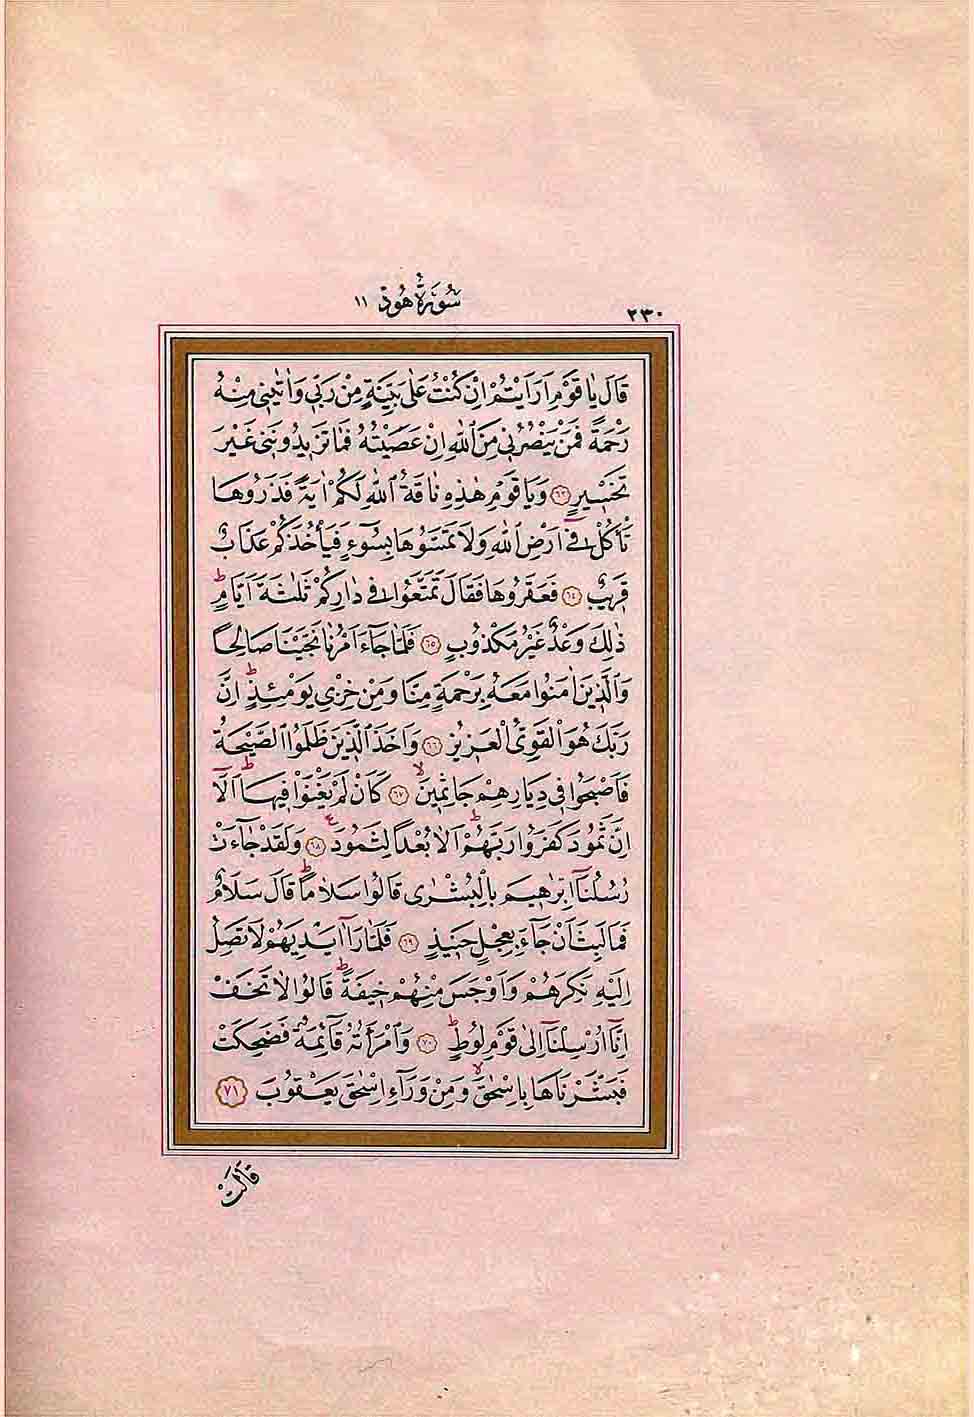 ٢٣٠ سُورَةُ هُودٍ ١١
قَالَ يَا قَوْمِ اَرَاَيْتُمْ اِنْ كُنْتُ عَلٰى بَيِّنَةٍ مِنْ رَبّ۪ي وَاٰتٰين۪ي مِنْهُ
رَحْمَةً فَمَنْ يَنْصُرُن۪ي مِنَ اللّٰهِ اِنْ عَصَيْتُهُ فَمَا تَز۪يدُونَن۪ي غَيْرَ
تَخْس۪يرٍ ﴿٦٣﴾ وَيَا قَوْمِ هٰذِه۪ نَاقَةُ اللّٰهِ لَكُمْ اٰيَةً فَذَرُوهَا
تَأْكُلْ ف۪ٓي اَرْضِ اللّٰهِ وَلَا تَمَسُّوهَا بِسُٓوءٍ فَيَأْخُذَكُمْ عَذَابٌ
قَر۪يبٌ ﴿٦٤﴾ فَعَقَرُوهَا فَقَالَ تَمَتَّعُوا ف۪ي دَارِكُمْ ثَلٰثَةَ اَيَّامٍۜ
ذٰلِكَ وَعْدٌ غَيْرُ مَكْذُوبٍ ﴿٦٥﴾ فَلَمَّا جَٓاءَ اَمْرُنَا نَجَّيْنَا صَالِحًا
وَالَّذ۪ينَ اٰمَنُوا مَعَهُ بِرَحْمَةٍ مِنَّا وَمِنْ خِزْيِ يَوْمِئِذٍۜ اِنَّ
رَبَّكَ هُوَ الْقَوِيُّ الْعَز۪يزُ ﴿٦٦﴾ وَاَخَذَ الَّذ۪ينَ ظَلَمُوا الصَّيْحَةُ
فَاَصْبَحُوا ف۪ي دِيَارِهِمْ جَاثِم۪ينَۙ ﴿٦٧﴾ كَاَنْ لَمْ يَغْنَوْا ف۪يهَاۜ اَلَٓا
اِنَّ ثَمُودَ كَفَرُوا رَبَّهُمْۜ اَلَا بُعْدًا لِثَمُودَ۟ ﴿٦٨﴾ وَلَقَدْ جَٓاءَتْ
رُسُلُنَٓا اِبْرٰه۪يمَ بِالْبُشْرٰى قَالُوا سَلَامًاۜ قَالَ سَلَامٌ
فَمَا لَبِثَ اَنْ جَٓاءَ بِعِجْلٍ حَن۪يذٍ ﴿٦٩﴾ فَلَمَّا رَآٰ اَيْدِيَهُمْ لَا تَصِلُ
اِلَيْهِ نَكِرَهُمْ وَاَوْجَسَ مِنْهُمْ خ۪يفَةًۜ قَالُوا لَا تَخَفْ
اِنَّٓا اُرْسِلْنَٓا اِلٰى قَوْمِ لُوطٍۜ ﴿٧٠﴾ وَامْرَاَتُهُ قَٓائِمَةٌ فَضَحِكَتْ
فَبَشَّرْنَاهَا بِاِسْحٰقَۙ وَمِنْ وَرَٓاءِ اِسْحٰقَ يَعْقُوبَ ﴿٧١﴾
قَالَتْ